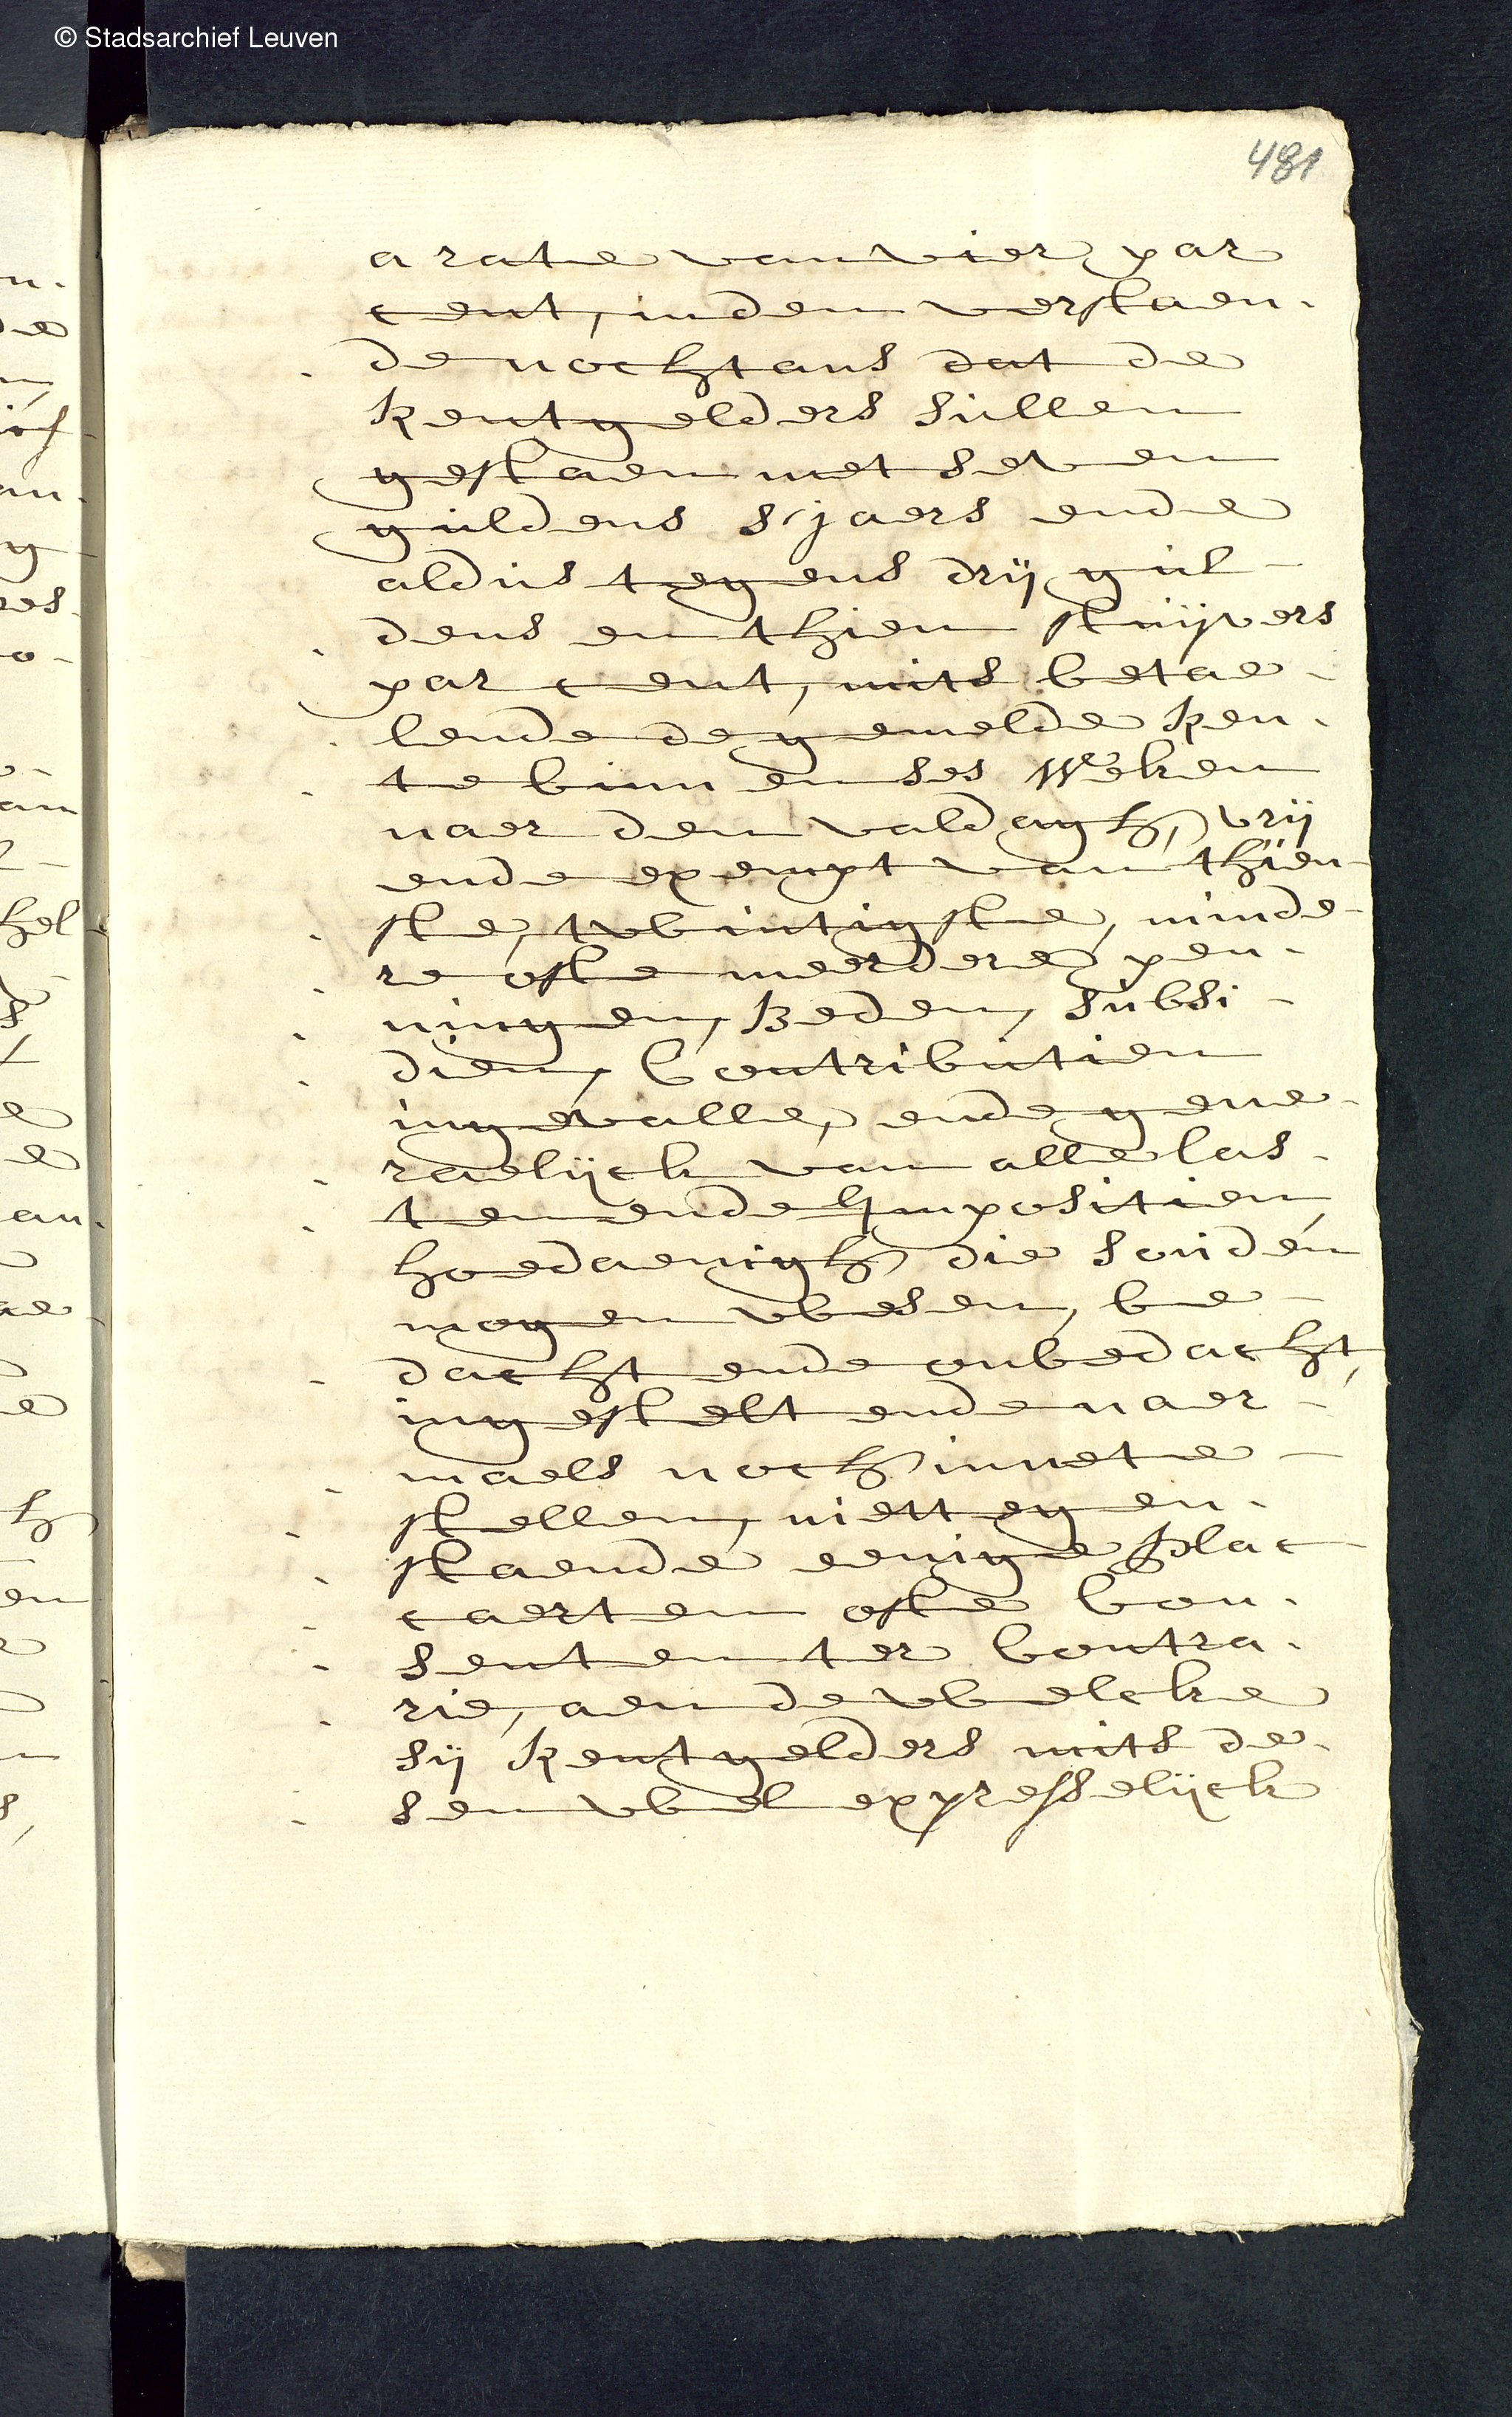 © Stadsarchief Leuven
481
a rate van vier par
cent, inden verstaen-
de nochtans dat de
Rentgelders sullen
gestaen met seven
guldens s'jaers ende
aldus tegens drij gul-
dens en thien stuijvers
par cent, mits betae-
lende de gemelde Ren-
te binnen ses Weken
naer den valdagh, vrij
ende exempt van thien-
ste, twintigste, minde-
re ofte meerdere pen-
ningen, Beden, subsi-
dien, Contributien
ingevalle, ende gene-
raelijck van alle las-
ten ende Impositien,
hoedaenigh die souden
mogen wesen, be-
dacht ende onbedacht,
ingestelt ende naer-
maels noch inne te
stellen, niettegen-
staende eenige Plac-
caerten ofte Con-
senten ter Contra-
rie, aen de welcke
sij Rentgelders mits de-
sen wel expresselijck